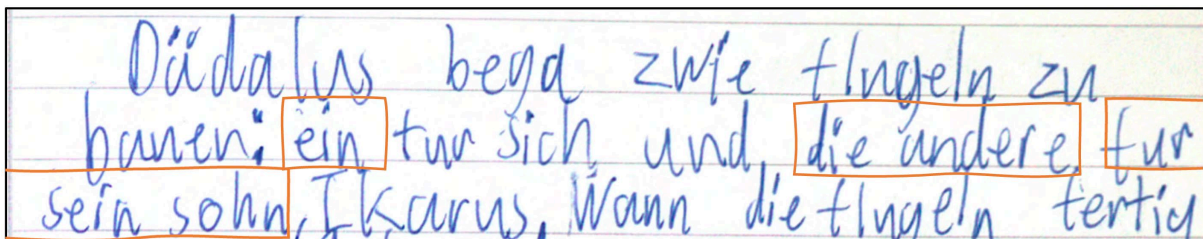 Dädalus bega zwie flugeln zu
bauen: ein fur sich und, die andere, fur
sein sohn, Ikarus. Wann die flugeln fertig